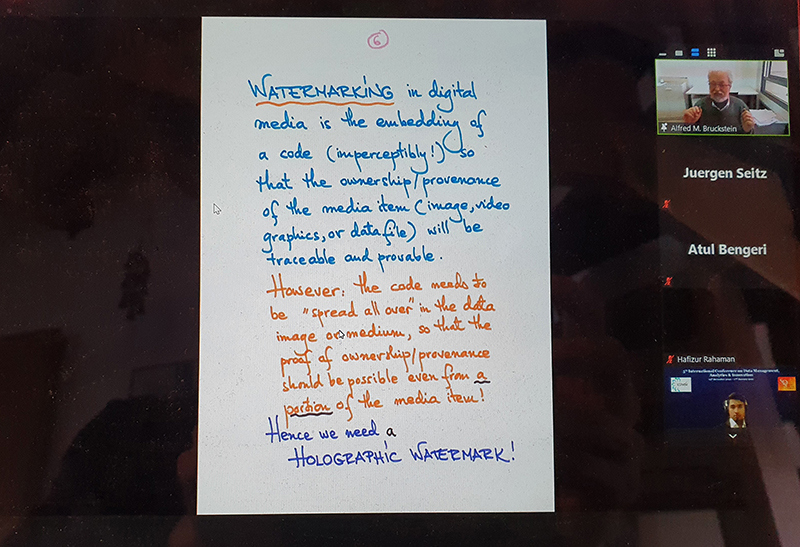 6
WATERMARKING in digital
media is the embedding of
a code (imperceptibly!) so
that the ownership/provenance
of the media item (image, video
graphics, or datafile) will be
traceable and provable.
However: the code needs to
be "spread all over" in the data
image or medium, so that the
proof of ownership/provenance
should be possible even from a
portion of the media item!
Hence we need a
HOLOGRAPHIC WATERMARK!
Alfred M. Bruckstein
Juergen Seitz
Atul Bengeri
Hafizur Rahaman
5th International Conference on Data Management,
Analytics & Innovation